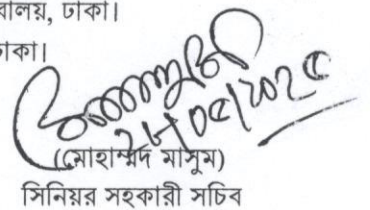 বালয়, ঢাকা।
ঢাকা।
২৮/০৫/২০২৫
(মোহাম্মদ মাসুম)
সিনিয়র সহকারী সচিব